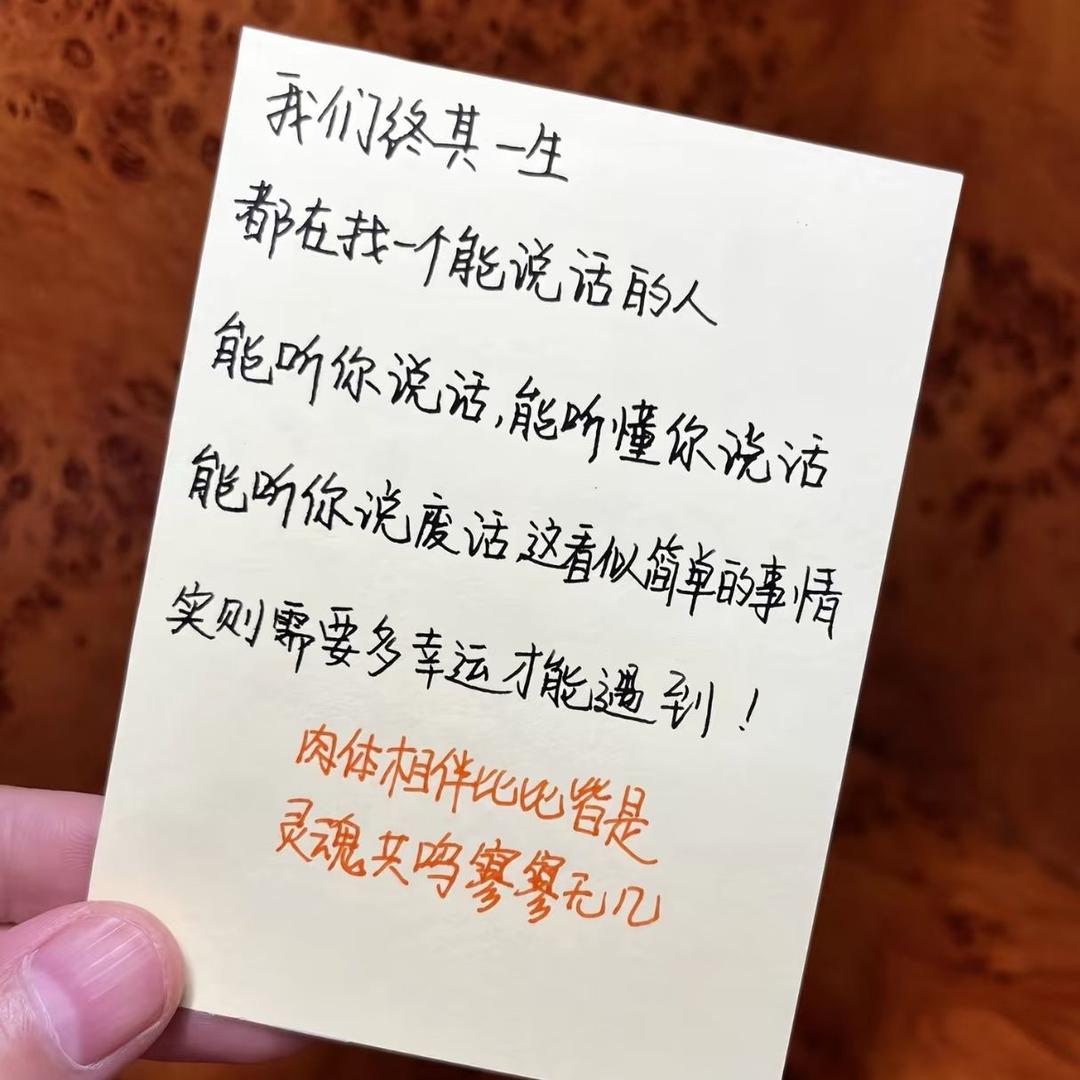 我们终其一生
都在找一个能说话的人
能听你说话,能听懂你说话
能听你说废话,这看似简单的事情
实则需要多幸运才能遇到!
肉体相伴比比皆是
灵魂共鸣寥寥无几